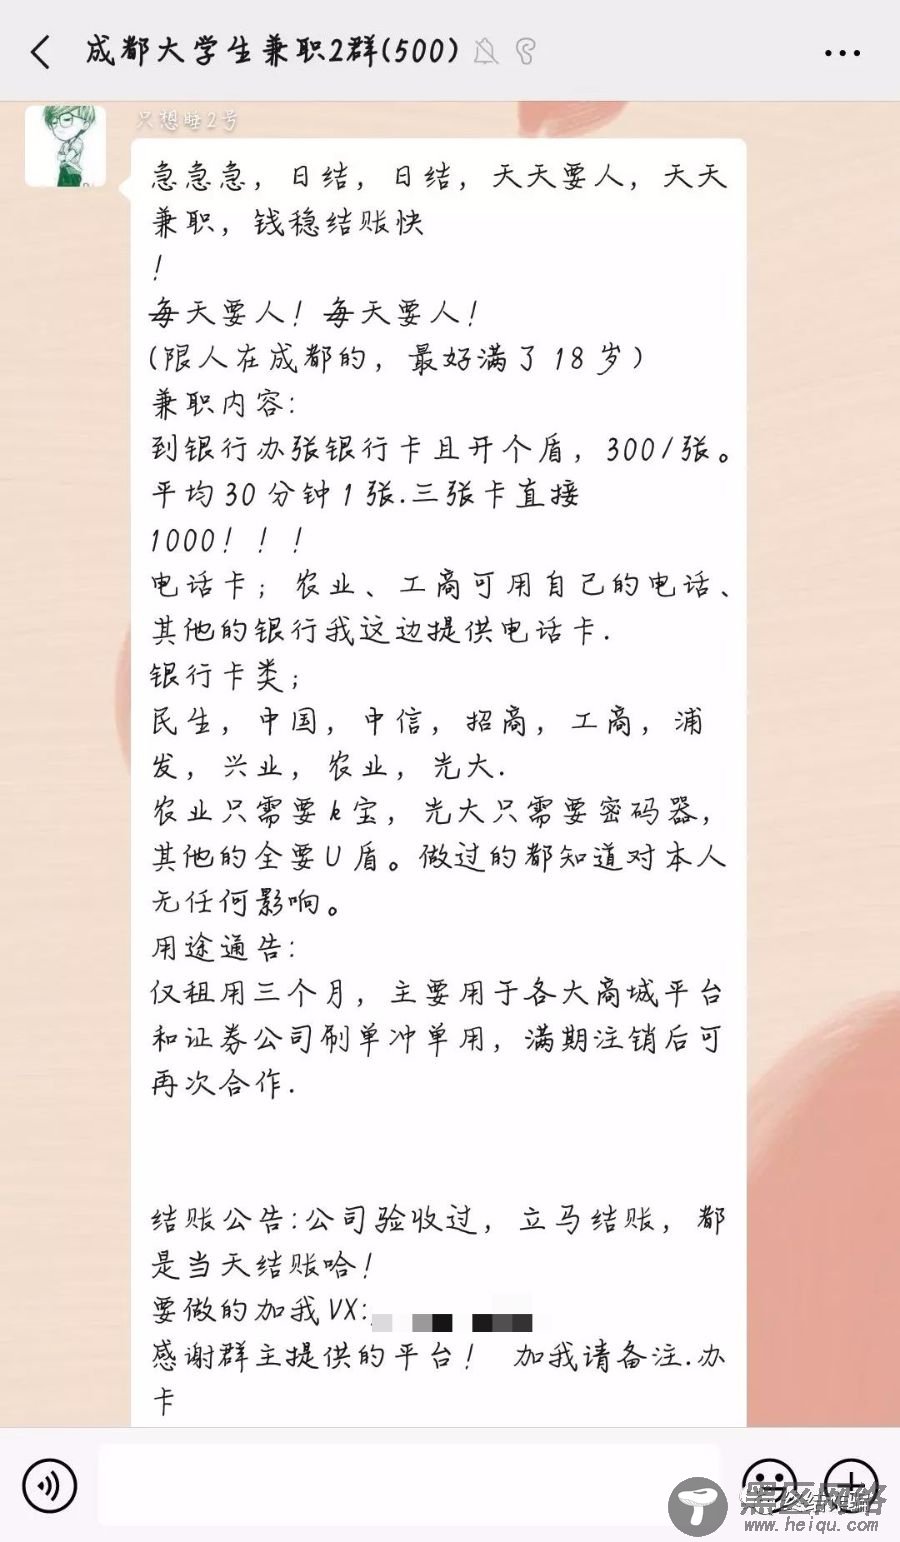 成都大学生兼职2群(500)
只想睡2号
急急急，日结，日结，天天要人，天天
兼职，钱稳结账快
！
每天要人！每天要人！
(限人在成都的，最好满了18岁)
兼职内容：
到银行办张银行卡且开个盾，300/张。
平均30分钟1张.三张卡直接
1000！！！
电话卡；农业、工商可用自己的电话、
其他的银行我这边提供电话卡.
银行卡类；
民生，中国，中信，招商，工商，浦
发，兴业，农业，光大.
农业只需要k宝，光大只需要密码器，
其他的全要U盾。做过的都知道对本人
无任何影响。
用途通告：
仅租用三个月，主要用于各大商城平台
和证券公司刷单冲单用，满期注销后可
再次合作.
结账公告:公司验收过，立马结账，都
是当天结账哈！
要做的加我VX:
感谢群主提供的平台！ 加我请备注.办
卡
黑区网络
www.heiqu.com